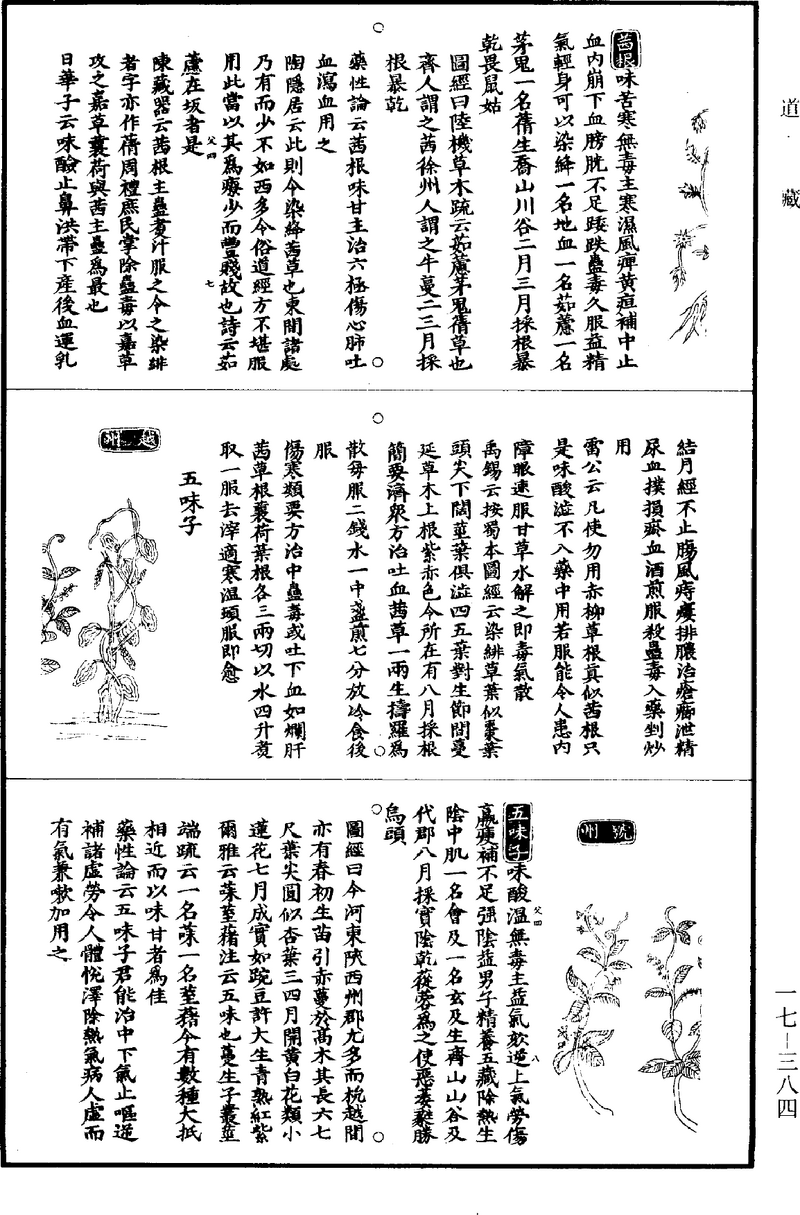 道藏
茜根味苦寒無毒主寒濕風痺黃疸補中止
血內崩下血膀胱不足踒跌蠱毒久服益精
氣輕身可以染絳一名地血一名茹藘一名
茅蒐一名蒨生喬山川谷二月三月採根暴
乾畏鼠姑
圖經曰陸機草木疏云茹藘茅蒐蒨草也
齊人謂之茜徐州人謂之牛蔓二三月採
根暴乾
藥性論云茜根味甘主治六極傷心肺吐
血瀉血用之
陶隱居云此則今染絳茜草也東間諸處
乃有而少不如西多今俗道經方不甚服
用此當以其為療少而豐賤故也詩云茹
藘在坂者是
陳藏器云茜根主蠱煑汁服之今之染緋
者字亦作蒨周禮庶民掌除蠱毒以嘉草
攻之嘉草蘘荷與茜主蠱為最也
日華子云味醶止鼻洪帶下產後血運乳
結月經不止腸風痔瘻排膿治瘡癤泄精
尿血撲損瘀血酒煎服殺蠱毒入藥剉炒
用
雷公云凡使勿用赤柳草根真似茜根只
是味酸澁不入藥中用若服能令人患內
障眼速服甘草水解之即毒氣散
禹錫云按蜀本圖經云染緋草葉似棗葉
頭尖下闊莖葉俱澁四五葉對生節間蔓
延草木上根紫赤色今所在有八月採根
簡要濟衆方治吐血茜草一兩生擣羅為
散每服二錢水一中盞煎七分放冷食後
服
傷寒類要方治中蠱毒或吐下血如爛肝
茜草根蘘荷葉根各三兩切以水四升煑
取一服去滓適寒溫頓服即愈
五味子
越州
虢州
五味子味酸溫無毒主益氣欬逆上氣勞傷
羸瘦補不足强陰益男子精養五藏除熱生
陰中肌一名會及一名玄及生齊山山谷及
代郡八月採實陰乾蓯蓉為之使惡萎蕤勝
烏頭
圖經曰今河東陝西州郡尤多而杭越間
亦有春初生苗引赤蔓於高木其長六七
尺葉尖圓似杏葉三四月開黃白花類小
蓮花七月成實如豌豆許大生青熟紅紫
爾雅云菋莖藸注云五味也蔓生子叢莖
端疏云一名菋一名莖藸今有數種大抵
相近而以味甘者為佳
藥性論云五味子君能治中下氣止嘔逆
補諸虛勞令人體悅澤除熱氣病人虛而
有氣兼嗽加用之
一七－三八四